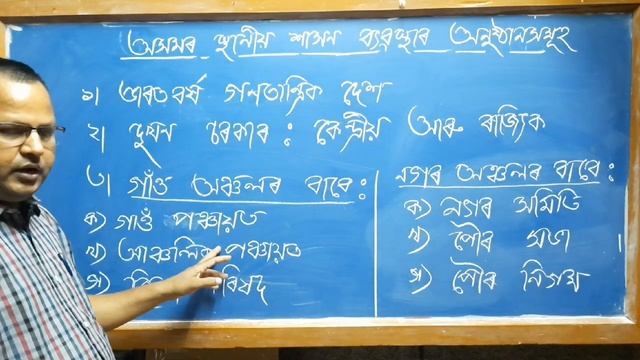 অসমৰ স্থানীয় শাসন ব্যৱস্থাৰ অনুষ্ঠানসমূহ
১। ভাৰতবৰ্ষ গণতান্ত্ৰিক দেশ
২। চৰকাৰ : কেন্দ্ৰীয় আৰু ৰাজ্যিক
৩। গাঁও অঞ্চলৰ বাবে :
ক) গাওঁ পঞ্চায়ত
খ) আঞ্চলিক পঞ্চায়ত
গ)
নগৰ অঞ্চলৰ বাবে :
ক) নগৰ সমিতি
খ) পৌৰ সভা
গ) পৌৰ নিগম